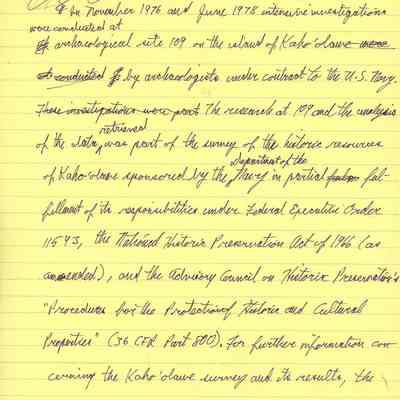 In November 1976 and June 1978 intensive investigations
were conducted at
archaeological site 109 on the island of Kaho'olawe were
conducted by archaeologists under contract to the U.S. Navy.
These investigations were part The research at 109 and the analysis
retrieved
of the data, was part of the survey of the historic resources
Department of the
of Kaho'olawe sponsored by the Navy in partial ful-
fillment of its responsibilities under Federal Executive Order
11593, the National Historic Preservation Act of 1966 (as
amended), and the Advisory Council on Historic Preservation's
"Procedures for the Protection of Historic and Cultural
Properties" (36 CFR Part 800). For further information con-
cerning the Kaho'olawe survey and its results, the